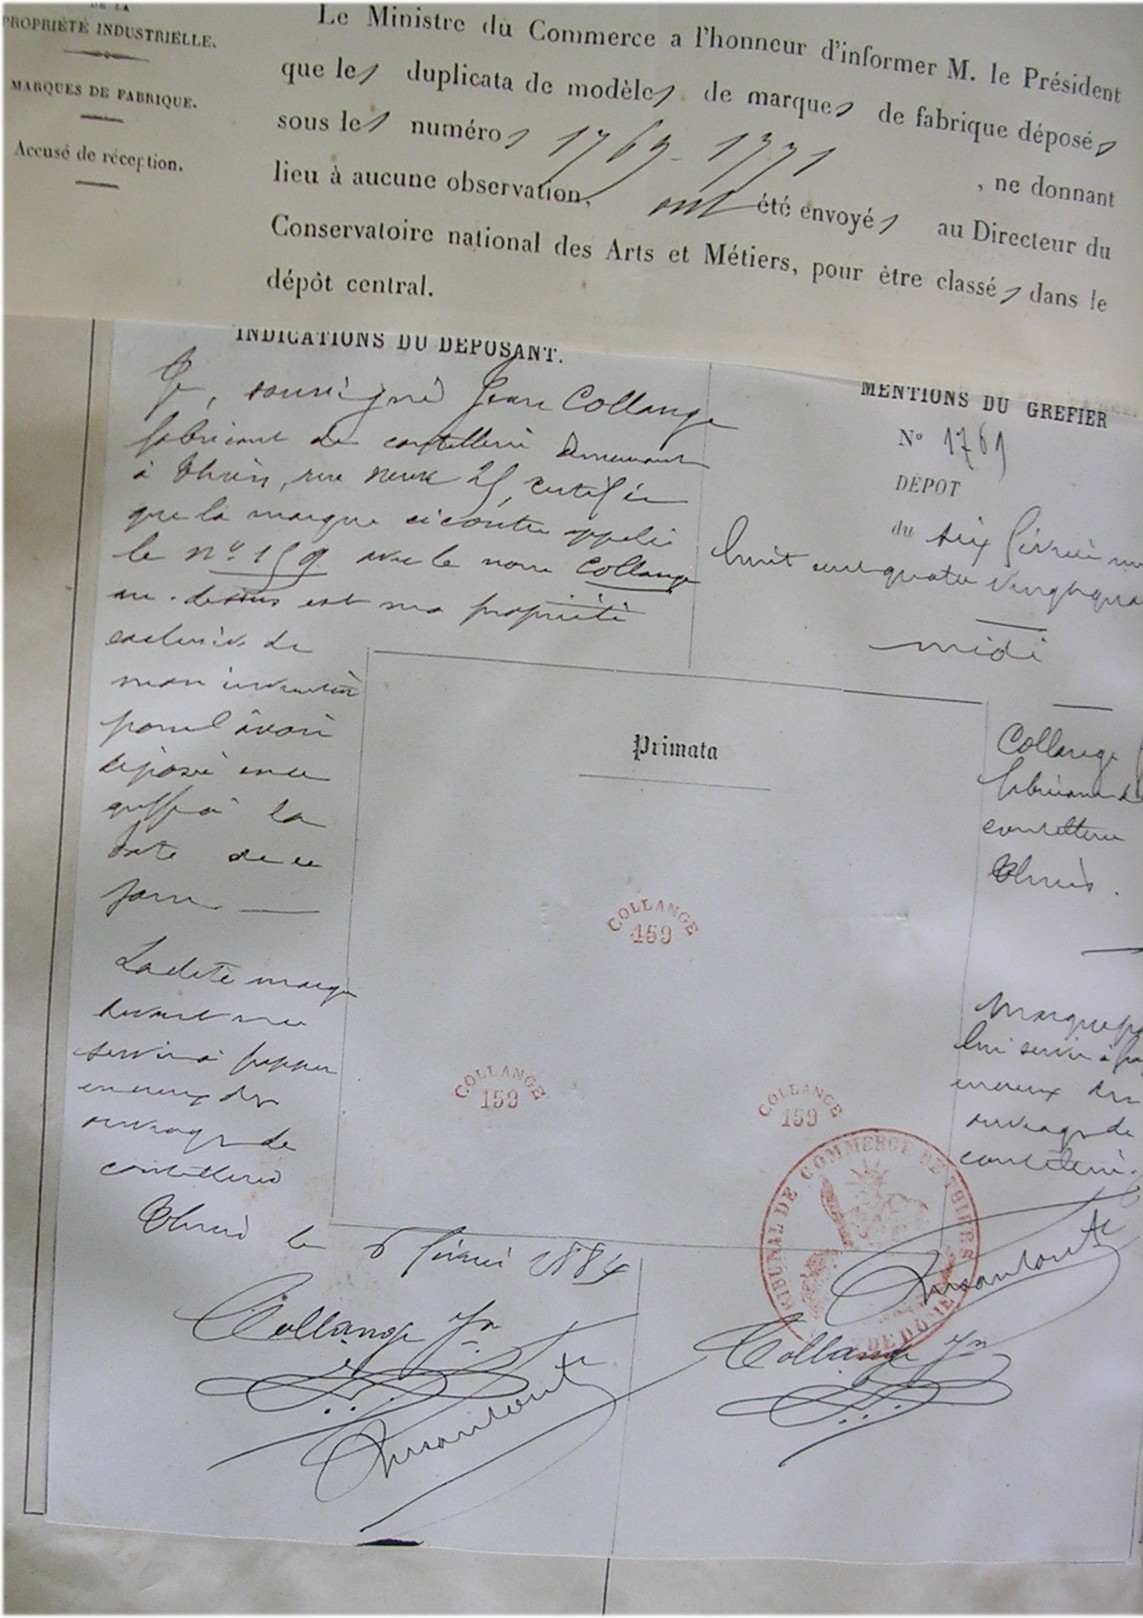 DE LA
PROPRIÉTÉ INDUSTRIELLE.
MARQUES DE FABRIQUE.
Accusé de réception.
Le Ministre du Commerce a l'honneur d'informer M. le Président
que les duplicata de modèles de marques de fabrique déposés
sous les numéros 1769-1771, ne donnant
lieu à aucune observation, ont été envoyés au Directeur du
Conservatoire national des Arts et Métiers, pour être classés dans le
dépôt central.
INDICATIONS DU DÉPOSANT.
Je, soussigné Jean Collange
fabricant de coutellerie demeurant
à Thiers, rue Neuve 25, certifie
que la marque ci contre appelée
le n° 159 avec le nom Collange
au-dessus est ma propriété
exclusive de
mon invention
pour l'avoir
déposée en ce
greffe à la
date de ce
jour
La dite marque
devant me
servir à frapper
en creux des
ouvrages de
coutellerie
Thiers le 6 février 1884
Collange Jn
MENTIONS DU GREFIER
N° 1769
DÉPOT
du six février mil
huit cent quatre vingt quatre
midi
Primata
COLLANGE
159
COLLANGE
159
COLLANGE
159
Collange
fabricant de
coutellerie
Thiers.
Marque p
lui servir à
en creux des
ouvrages de
coutellerie
TRIBUNAL DE COMMERCE DE THIERS
DE DOME
Collange Jn